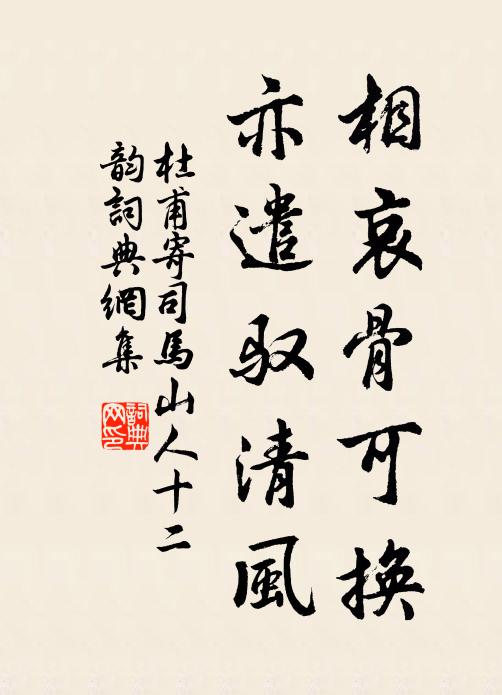 相哀骨可換
亦遣馭清風
杜甫寄司馬山人十二
韵詞典網集
詞典
网印